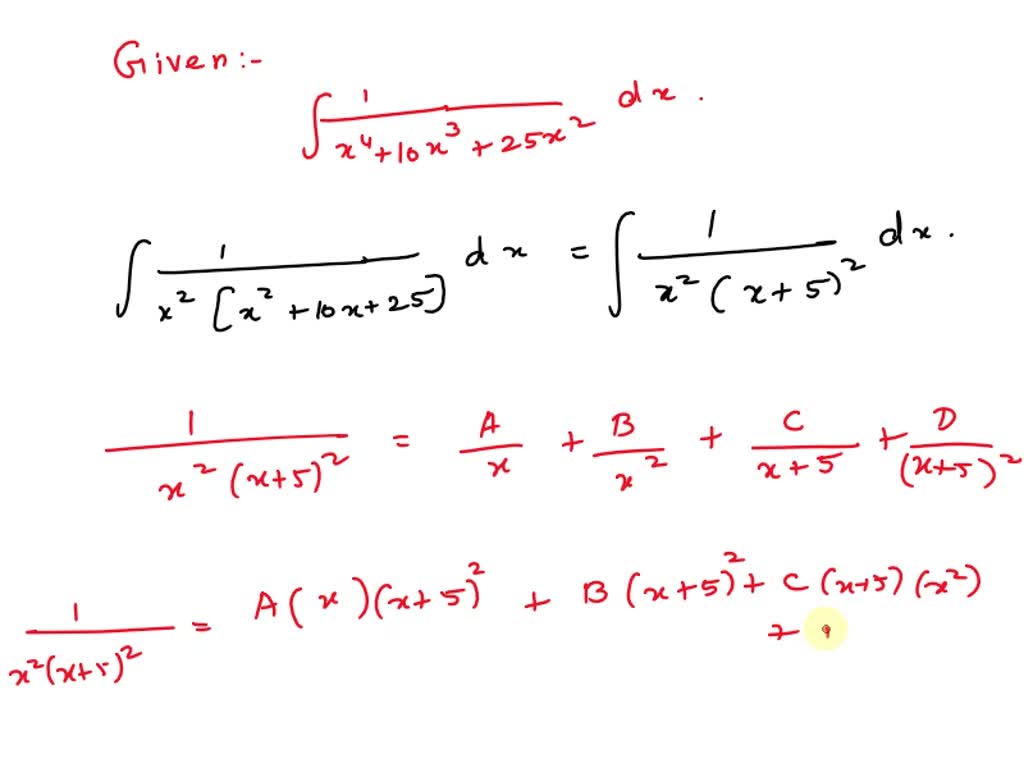 Given:-
∫ 1/(x⁴+10x³+25x²) dx.
∫ 1/(x²[x²+10x+25]) dx = ∫ 1/(x²(x+5)²) dx.
1/(x²(x+5)²) = A/x + B/x² + C/(x+5) + D/(x+5)²
1/(x²(x+5)²) = A(x)(x+5)² + B(x+5)² + C(x+5)(x²)
+